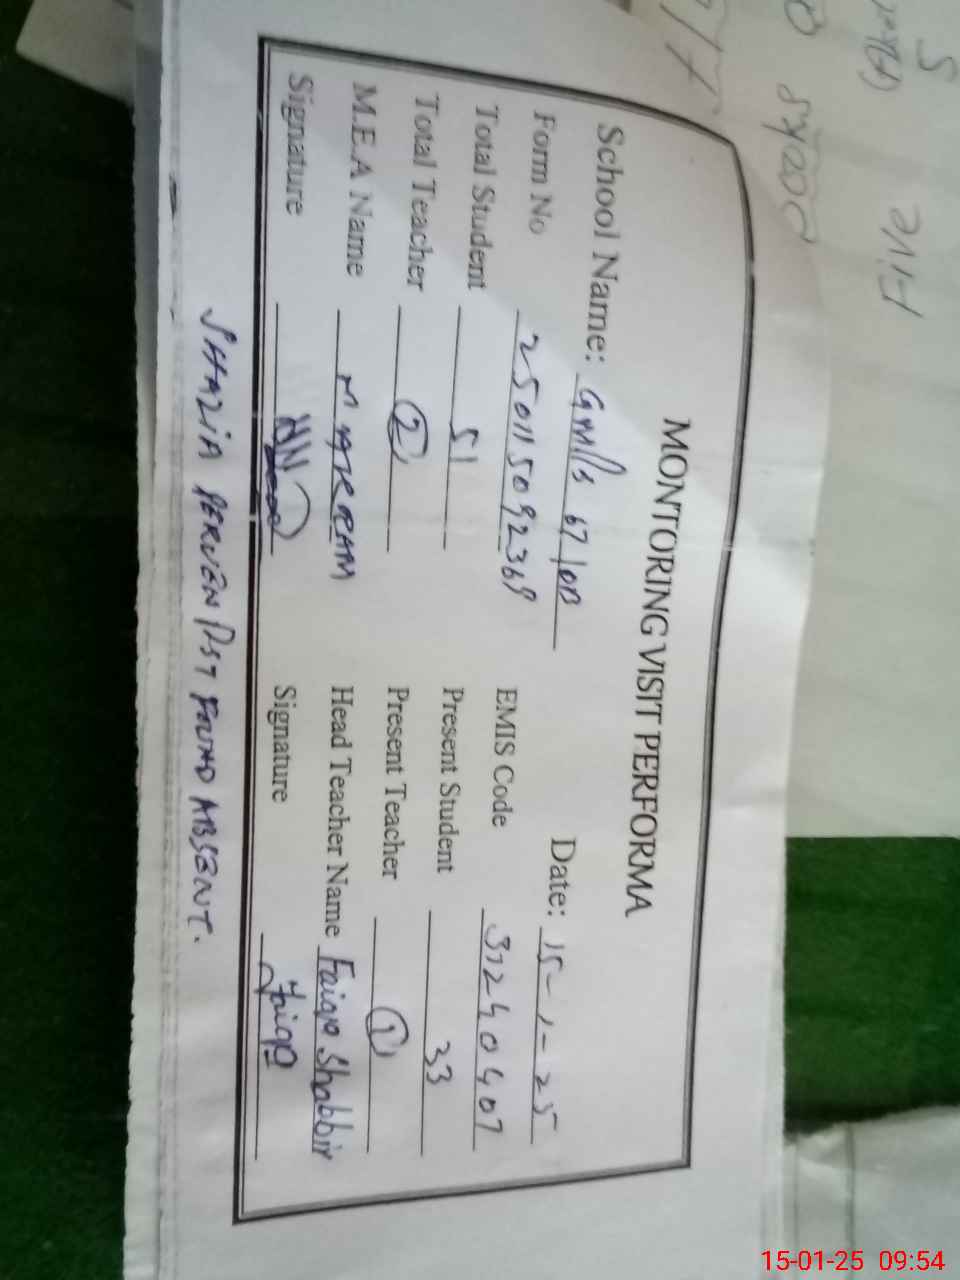 MONTORING VISIT PERFORMA
School Name: Gmlls 67/DB Date: 15-1-25
Form No 25011509236 EMIS Code 31240407
Total Student 51 Present Student 33
Total Teacher 2 Present Teacher 1
M.E.A Name M AKRAM Head Teacher Name Faiqa Shabbir
Signature Signature Faiqa
SHAZIA PERVEN PST FOUND ABSENT.
5
FIVE
15-01-25 09:54